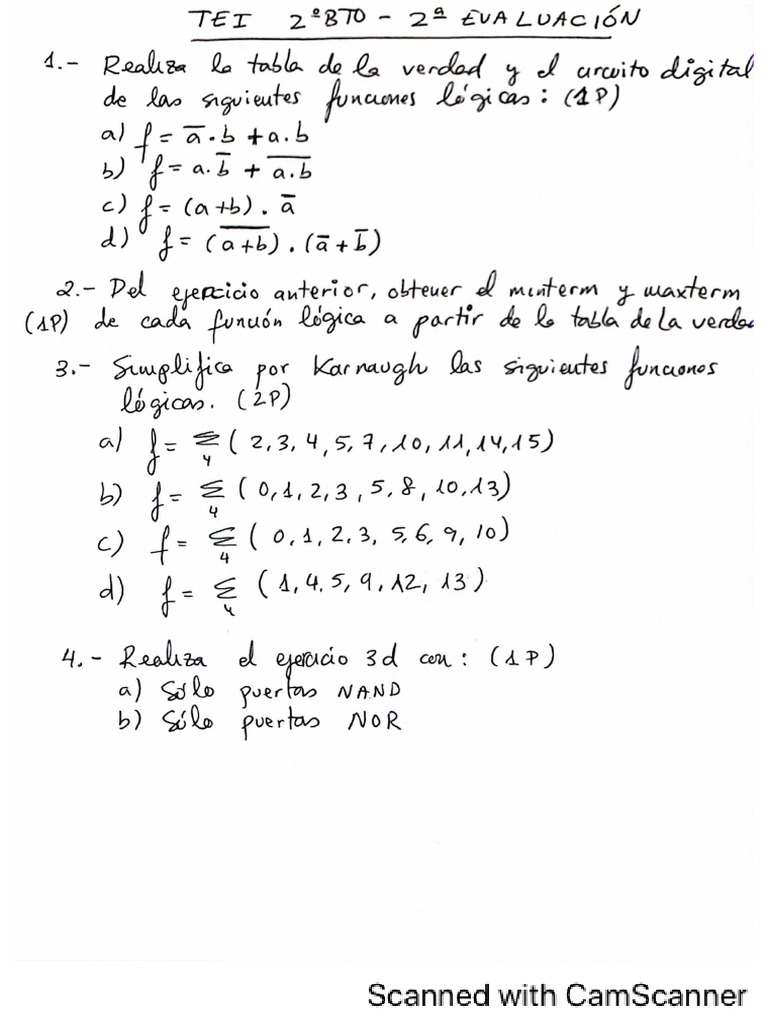 TEI 2º BTO - 2ª EVALUACIÓN
1.- Realiza la tabla de la verdad y el circuito digital
de las siguientes funciones lógicas: (1P)
a) f = a̅·b + a.b
b) f = a.b̅ + a̅.̅b̅
c) f = (a+b). a̅
d) f = (a̅+̅b̅). (a̅+b̅)
2.- Del ejercicio anterior, obtener el minterm y maxterm
(1P) de cada función lógica a partir de la tabla de La verda
3.- Simplifica por Karnaugh las siguientes funciones
lógicas. (2P)
a) f = Σ₄ ( 2,3,4,5,7,10,11,14,15)
b) f = Σ₄ ( 0,1,2,3,5,8,10,13)
c) f = Σ₄ ( 0,1,2,3,5,6,9,10)
d) f = Σ₄ (1,4,5,9,12,13)
4.- Realiza el ejercicio 3d con: (1P)
a) Sólo puertas NAND
b) Sólo puertas NOR
Scanned with CamScanner